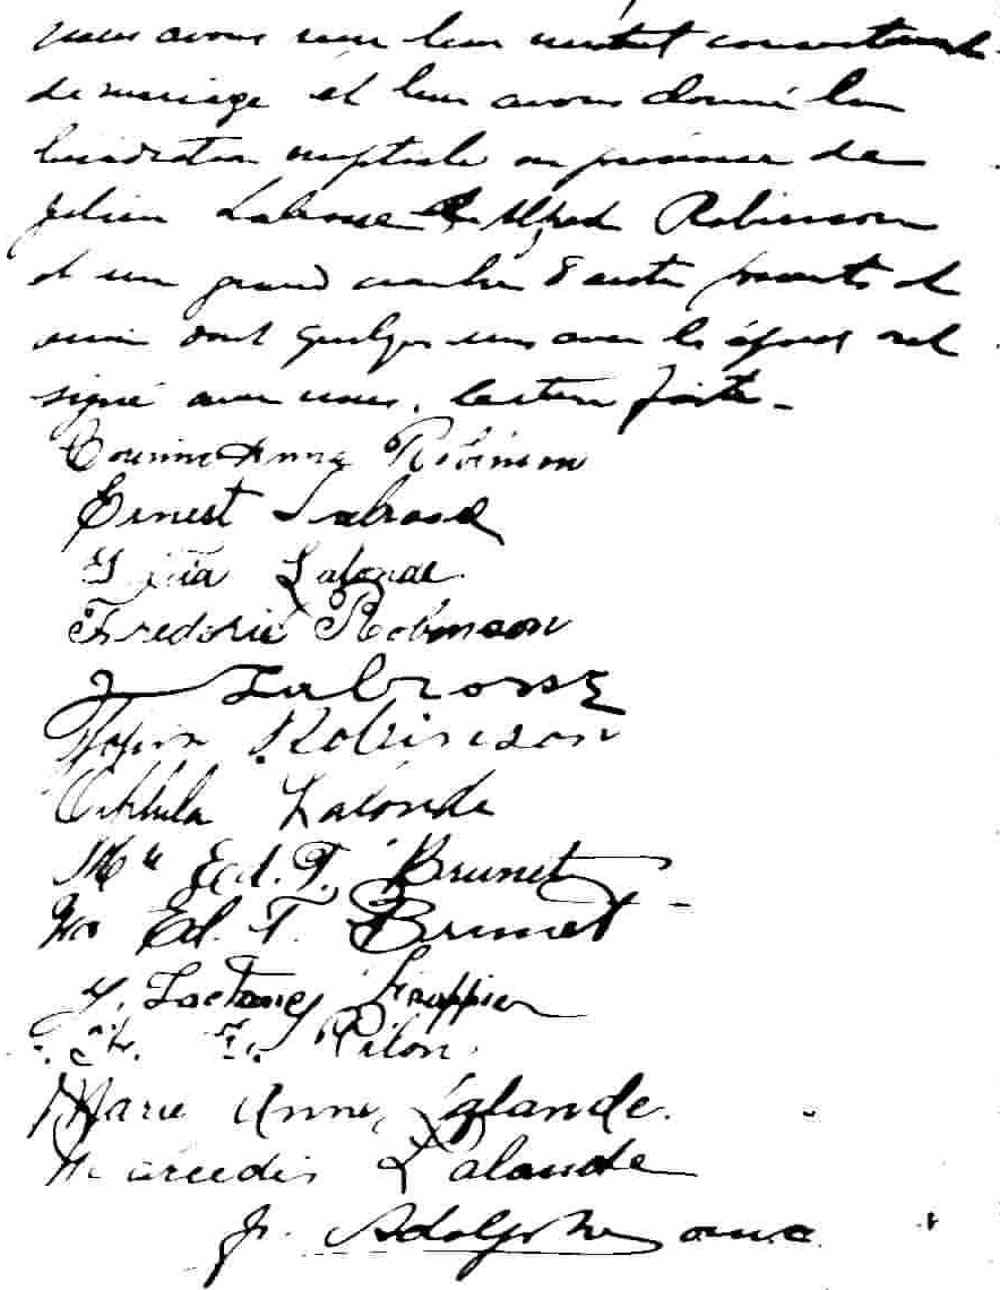 nous avons reçu leur mutuel consentement
de mariage et leur avons donné la
bénédiction nuptiale en présence de
Julien Labrosse et Alfred Robinson
et un grand nombre d'autres parents et
amis dont quelques uns avec les époux ont
signé avec nous. Lecture faite -
Corinne Anna Robinson
Ernest Labrosse
Labrosse
Frederic Robinson
J Labrosse
Robinson
Lalonde
Ed. T. Brunet
Ed. T. Brunet
Y. Lactance Frappier
Pilon
Marie Anne Lalande.
Mercedis Lalande
J. Adolphe